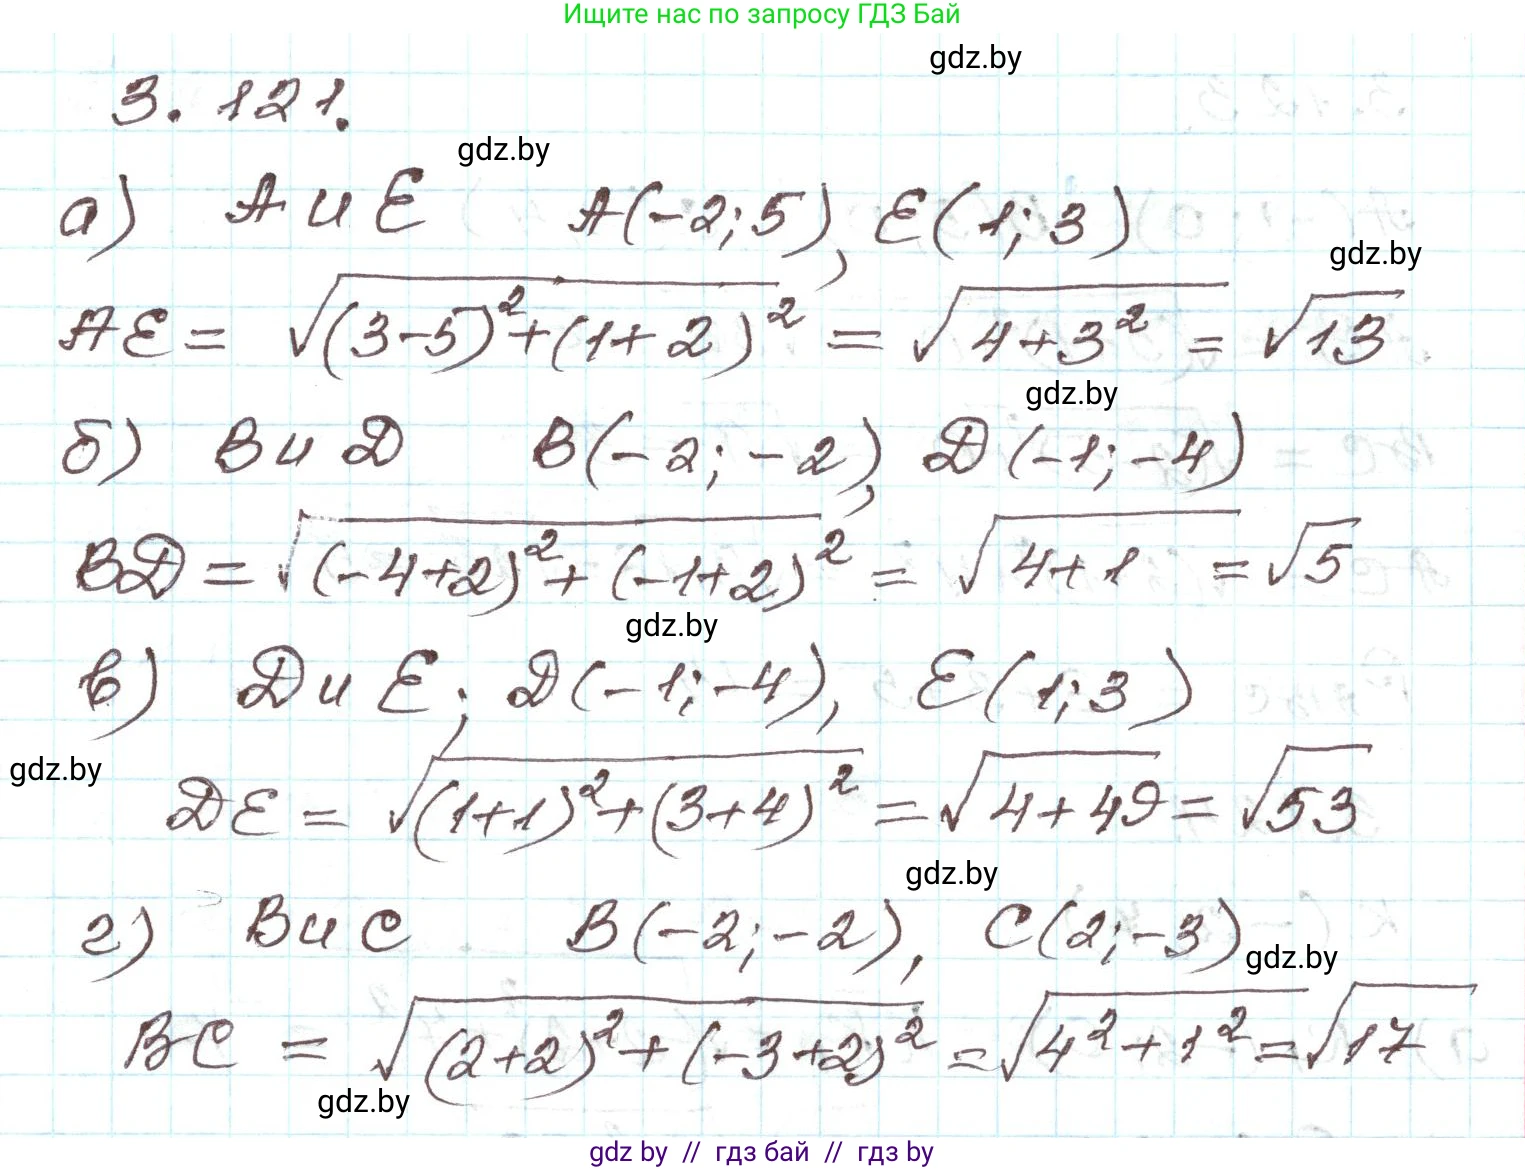 Ищите нас по запросу ГДЗ Бай
gdz.by
3.121.
gdz.by
а) А и Е А(-2; 5), Е(1; 3)
gdz.by
АЕ = √((3-5)²+(1+2)²) = √(4+3²) = √13
gdz.by
б) В и D В(-2; -2), D(-1; -4)
BD = √((-4+2)²+(-1+2)²) = √(4+1) = √5
gdz.by
в) D и Е; D(-1; -4), Е(1; 3)
gdz.by
DE = √((1+1)²+(3+4)²) = √(4+49) = √53
gdz.by
г) В и С В(-2; -2), С(2; -3)
gdz.by
ВС = √((2+2)²+(-3+2)²) = √(4²+1²) = √17
gdz.by
gdz by // гдз бай // гдз by